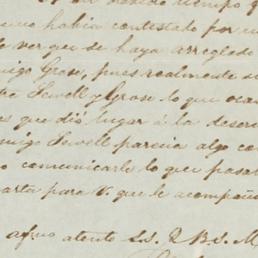 tiempo q
no había contestado por
ver que se haya arreglado
migo Grose, pues realmente s
Sewell y Grose lo que oca
es que dió lugar á la deser
migo Sewell parecia algo con
comunicarle lo que pasa
arta para V. que le acompaño
afmo atento S.S. Q B S. M